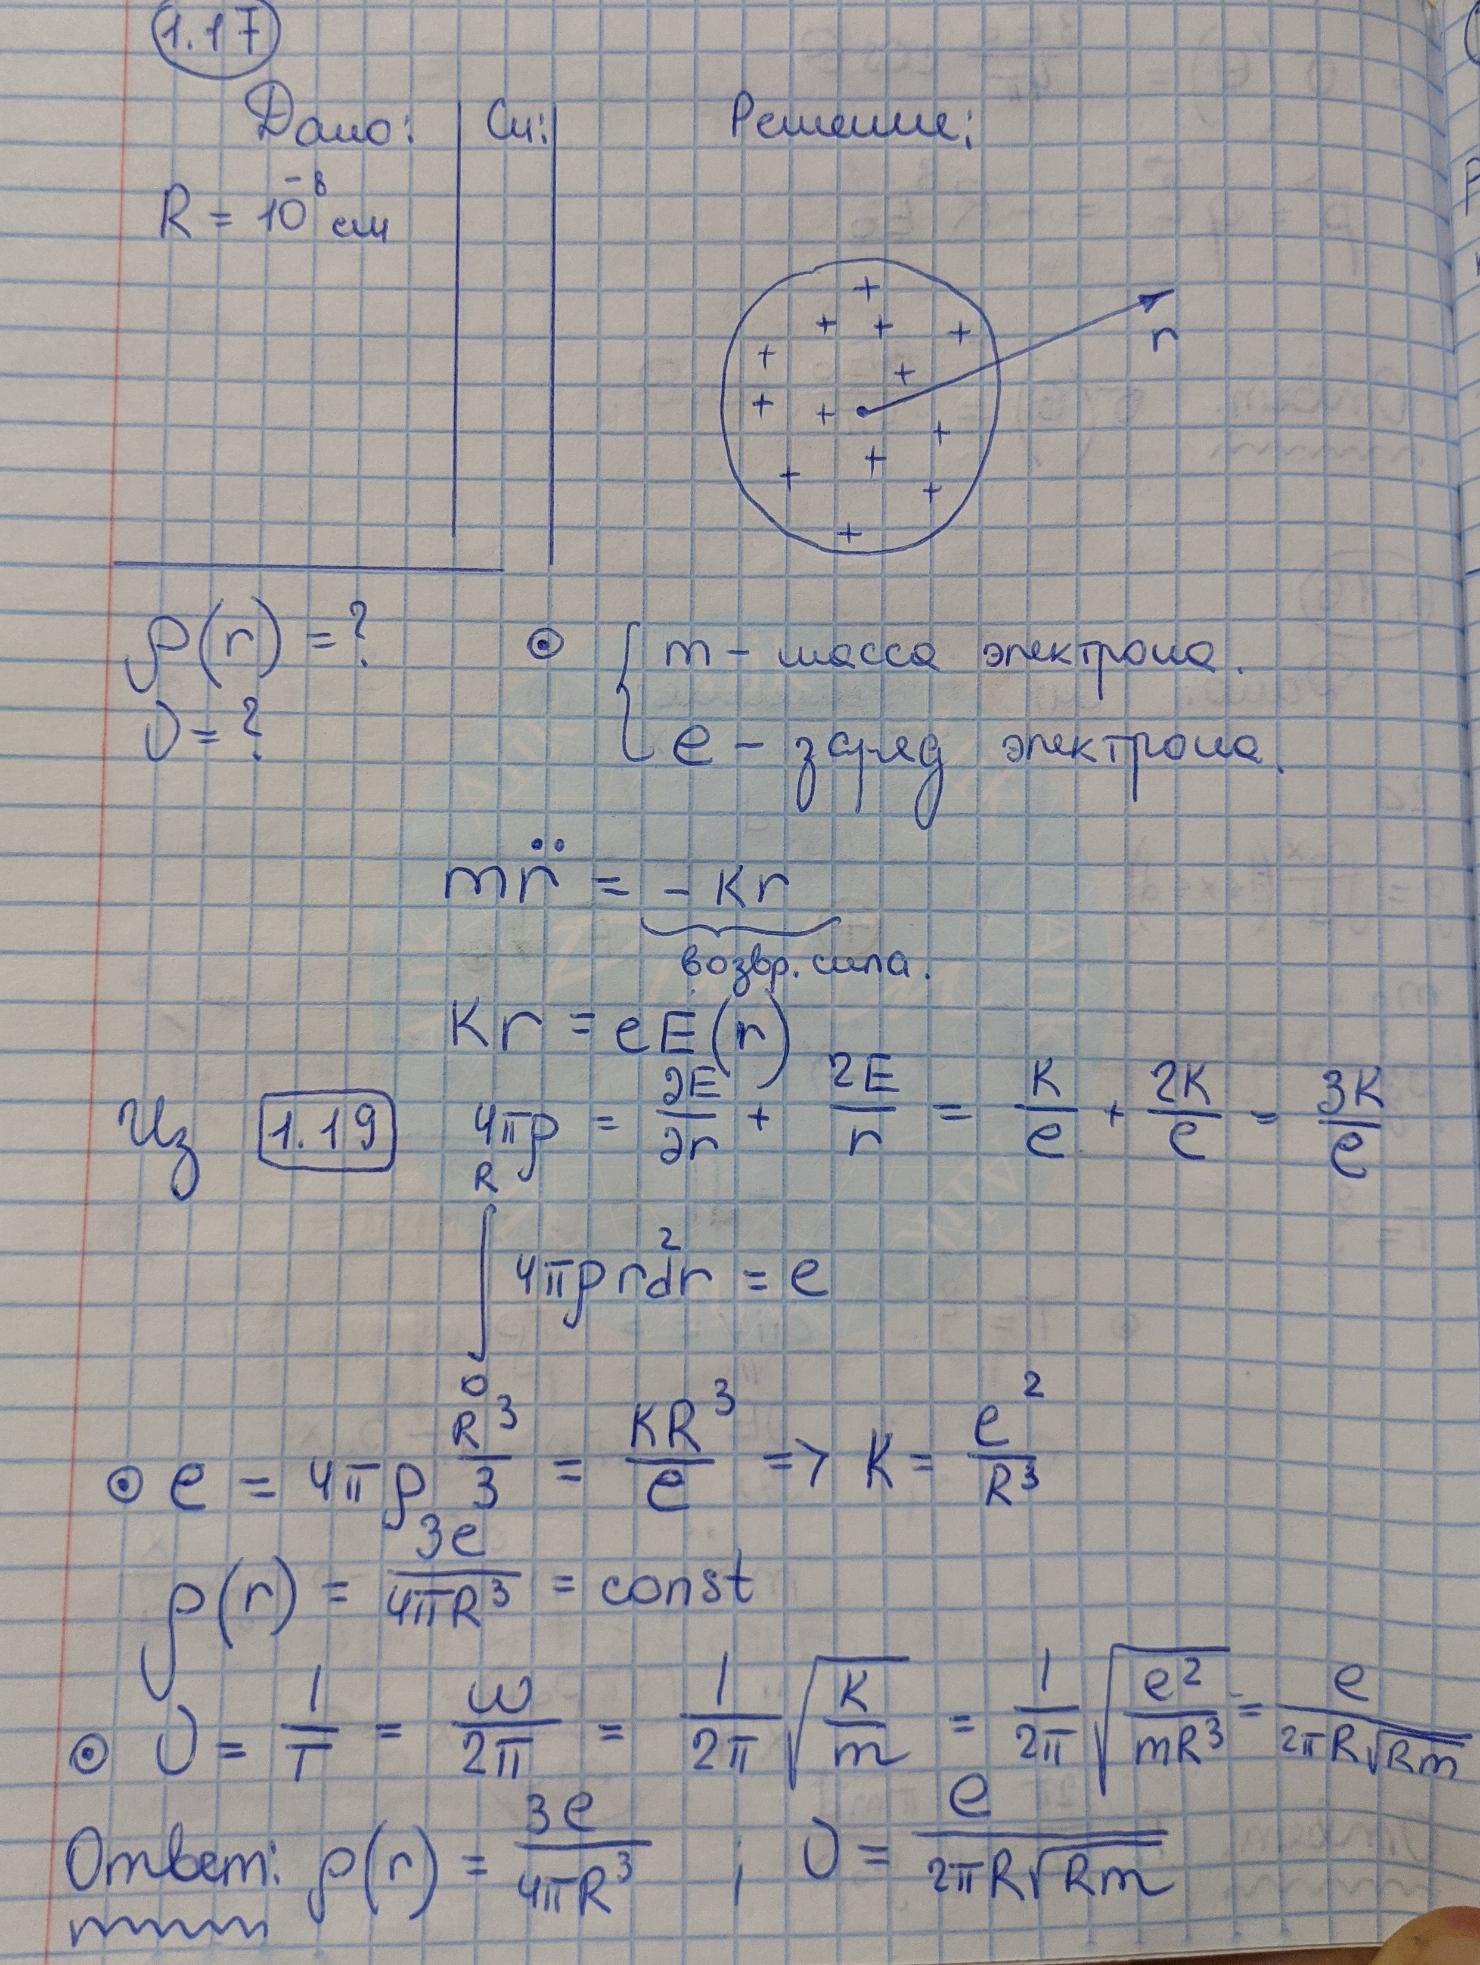 1.17
Дано: Си: Решение:
R = 10⁻⁸ см
r
ρ(r) = ?
ν = ?
⊙ { m – масса электрона.
e – заряд электрона.
mr̈ = –kr
возвр. сила.
kr = eE(r)
Из 1.19 4πρ = ∂E/∂r + 2E/r = k/e + 2k/e = 3k/e
∫₀ᴿ 4πρr²dr = e
⊙ e = 4πρ R³/3 = kR³/e => k = e²/R³
ρ(r) = 3e/4πR³ = const
⊙ ν = 1/T = ω/2π = 1/2π √(k/m) = 1/2π √(e²/mR³) = e/2πR√Rm
Ответ: ρ(r) = 3e/4πR³ ; ν = e/2πR√Rm